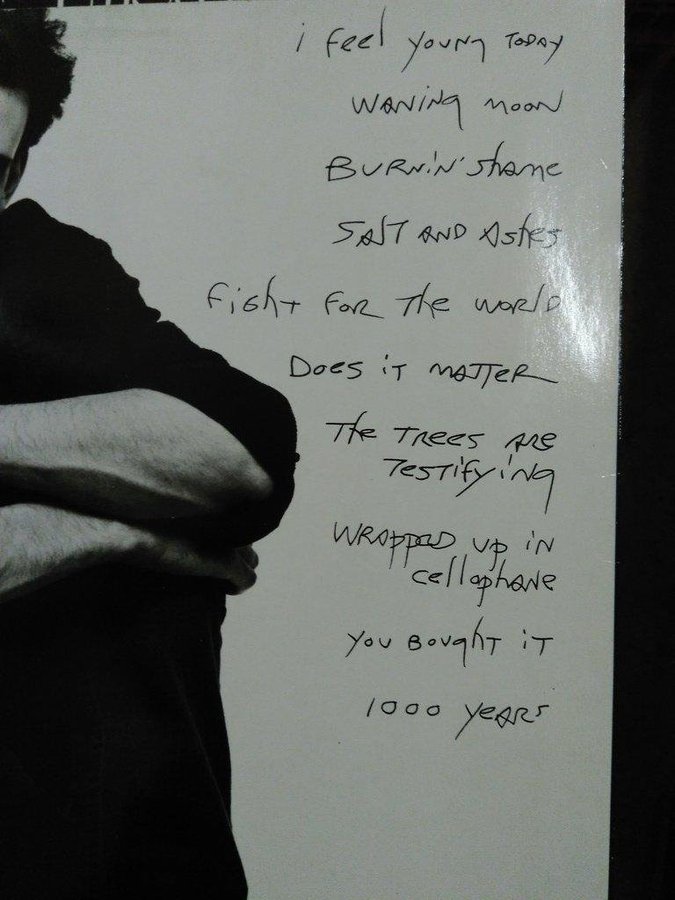 i feel young TODAY
WANiNg moon
BURNiN' shame
SAlT AND Ashes
fighT foR The woRlD
Does iT mATTeR
The TRees ARe
TesTifyiNg
WRAppeD up iN
cellophANe
you BoughT iT
1000 yeARs